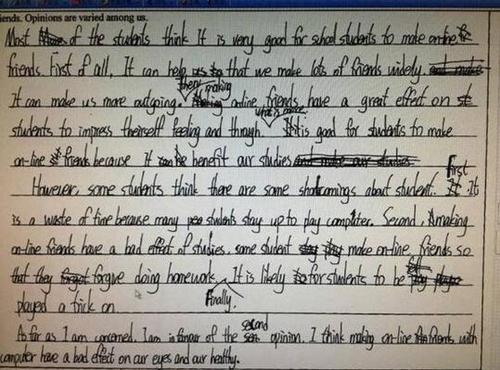 iends. Opinions are varied among us.
Most of the students think It is very good for school students to make on-line
friends. First of all, It can help that we make lots of friends widely
It can make us more outgoing. then making on-line friends have a great effect on
students to impress theirself feeling and through. what's more It is good for students to make
on-line friends because It can benefit our studies
However, some students think there are some shortcomings about student. First It
is a waste of time because many students stay up to play computer. Second, making
on-line friends have a bad effect of studies. some student make on-line friends so
that they forgive doing homework. Finally. It is likely for students to be
played a trick on.
As far as I am concerned, I am in favour of the second opinion. I think making on-line friends with
computer have a bad effect on our eyes and our healthy.